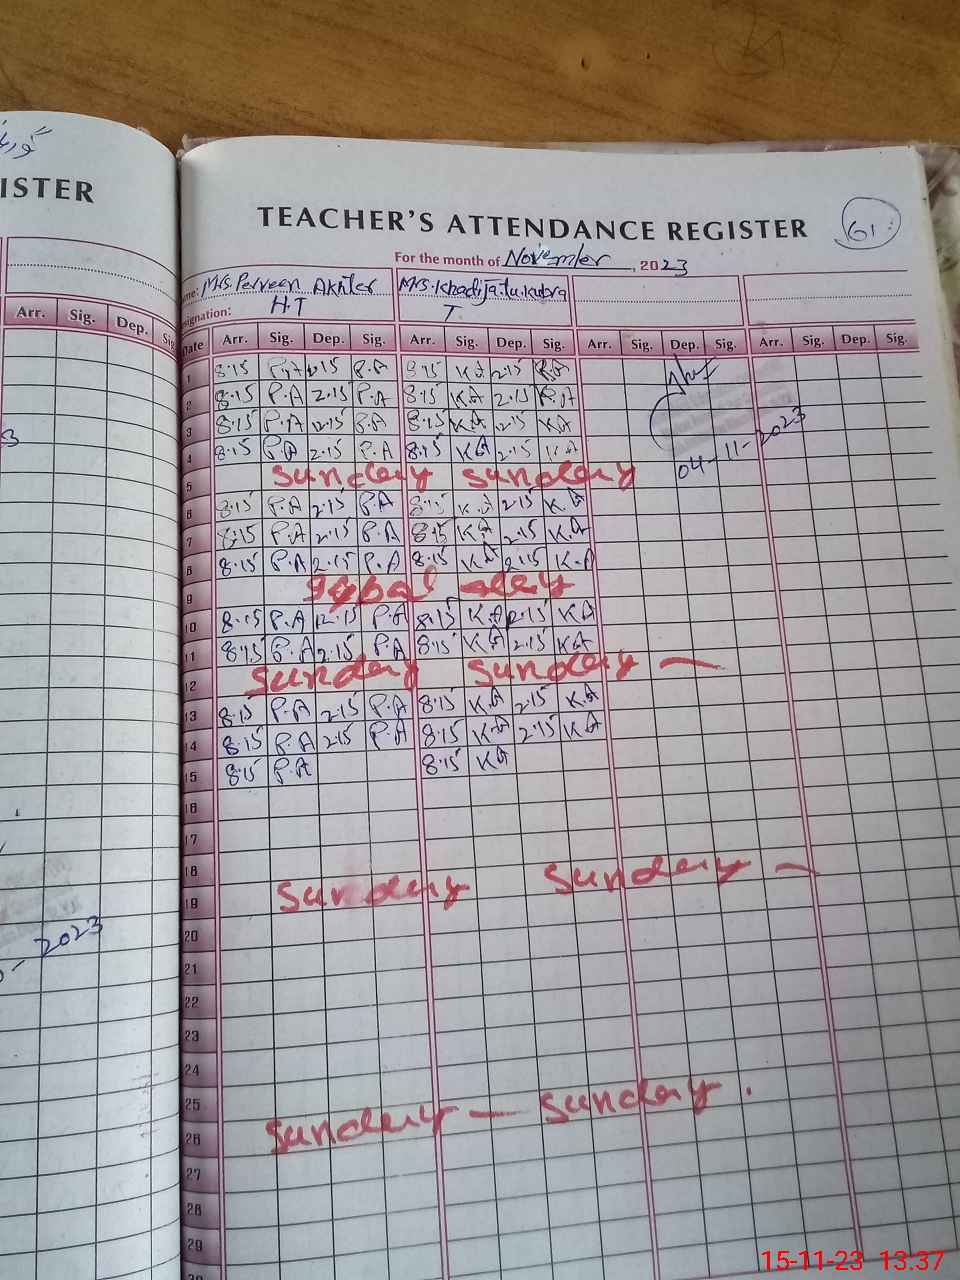 ISTER
TEACHER'S ATTENDANCE REGISTER
61
For the month of November, 2023
Mrs. Perveen Akhter Mrs. Khadija-tu-kubra
signation: H.T T
Arr. Sig. Dep. Sig
Date Arr. Sig. Dep. Sig. Arr. Sig. Dep. Sig. Arr. Sig. Dep. Sig. Arr. Sig. Dep. Sig.
1 8.15 P.A 2.15 P.A 8.15 K.A 2.15 K.A
2 8.15 P.A 2.15 P.A 8.15 K.A 2.15 K.A
3 8.15 P.A 2.15 P.A 8.15 K.A 2.15 K.A
4 8.15 P.A 2.15 P.A 8.15 K.A 2.15 K.A
04-11-2023
5 Sunday Sunday
6 8.15 P.A 2.15 P.A 8.15 K.A 2.15 K.A
7 8.15 P.A 2.15 P.A 8.15 K.A 2.15 K.A
8 8.15 P.A 2.15 P.A 8.15 K.A 2.15 K.A
9 day
10 8.15 P.A 2.15 P.A 8.15 K.A 2.15 K.A
11 8.15 P.A 2.15 P.A 8.15 K.A 2.15 K.A
12 Sunday Sunday —
13 8.15 P.A 2.15 P.A 8.15 K.A 2.15 K.A
14 8.15 P.A 2.15 P.A 8.15 K.A 2.15 K.A
15 8.15 P.A 8.15 K.A
16
17
18
19 Sunday Sunday —
20
2023
21
22
23
24
25
26 Sunday — Sunday.
27
28
29
30
15-11-23 13.37